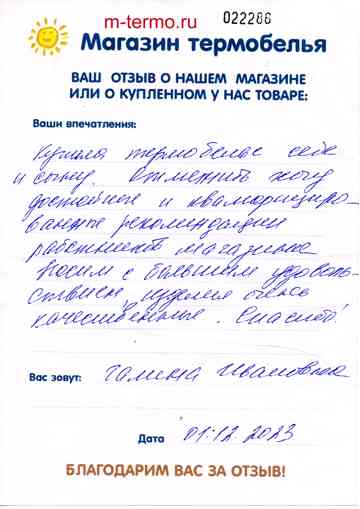 m-termo.ru
022286
Магазин термобелья
ВАШ ОТЗЫВ О НАШЕМ МАГАЗИНЕ
ИЛИ О КУПЛЕННОМ У НАС ТОВАРЕ:
Ваши впечатления:
Купила термобелье себе
и сыну. Отметить хочу
достойные и квалифициро-
ванные рекомендации
работников магазина
Носим с большим удоволь-
ствием, изделия очень
качественные. Спасибо!
Вас зовут: Галина Ивановна
Дата 01.12.2023
БЛАГОДАРИМ ВАС ЗА ОТЗЫВ!